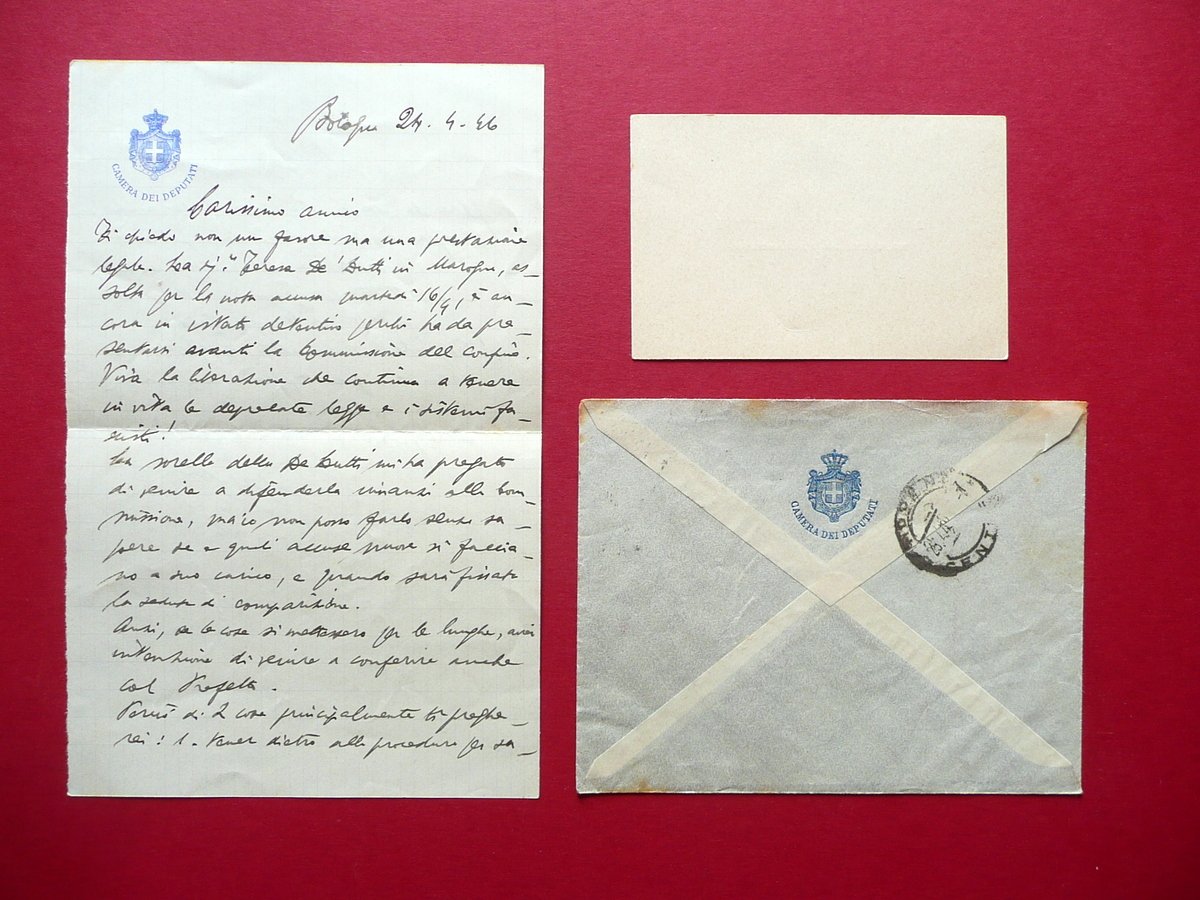 CAMERA DEI DEPUTATI
Bologna 24. 4. 46
Carissimo amico
Ti chiedo non un favore ma una prestazione
legale. La sig.ª Teresa De' Dutti in Marogna, as-
solta per la nota accusa martedì 16/4, è an-
cora in istato detentivo perché ha da pre-
sentarsi avanti la Commissione del confino.
Viva la liberazione che continua a tenere
in vita le deprecate legge e i sistemi fa-
scisti!
La sorella della De Dutti mi ha pregato
di venire a difenderla innanzi alla Com-
missione, ma io non posso farlo senza sa-
pere se e quali accuse nuove si faccia-
no a suo carico, e quando sarà fissata
la seduta di comparizione.
Anzi, se le cose si mettessero per le lunghe, avrei
intenzione di venire a conferire anche
col Prefetto.
Perciò di 2 cose principalmente ti preghe-
rei: 1. tener dietro alla procedura per sa-
CAMERA DEI DEPUTATI